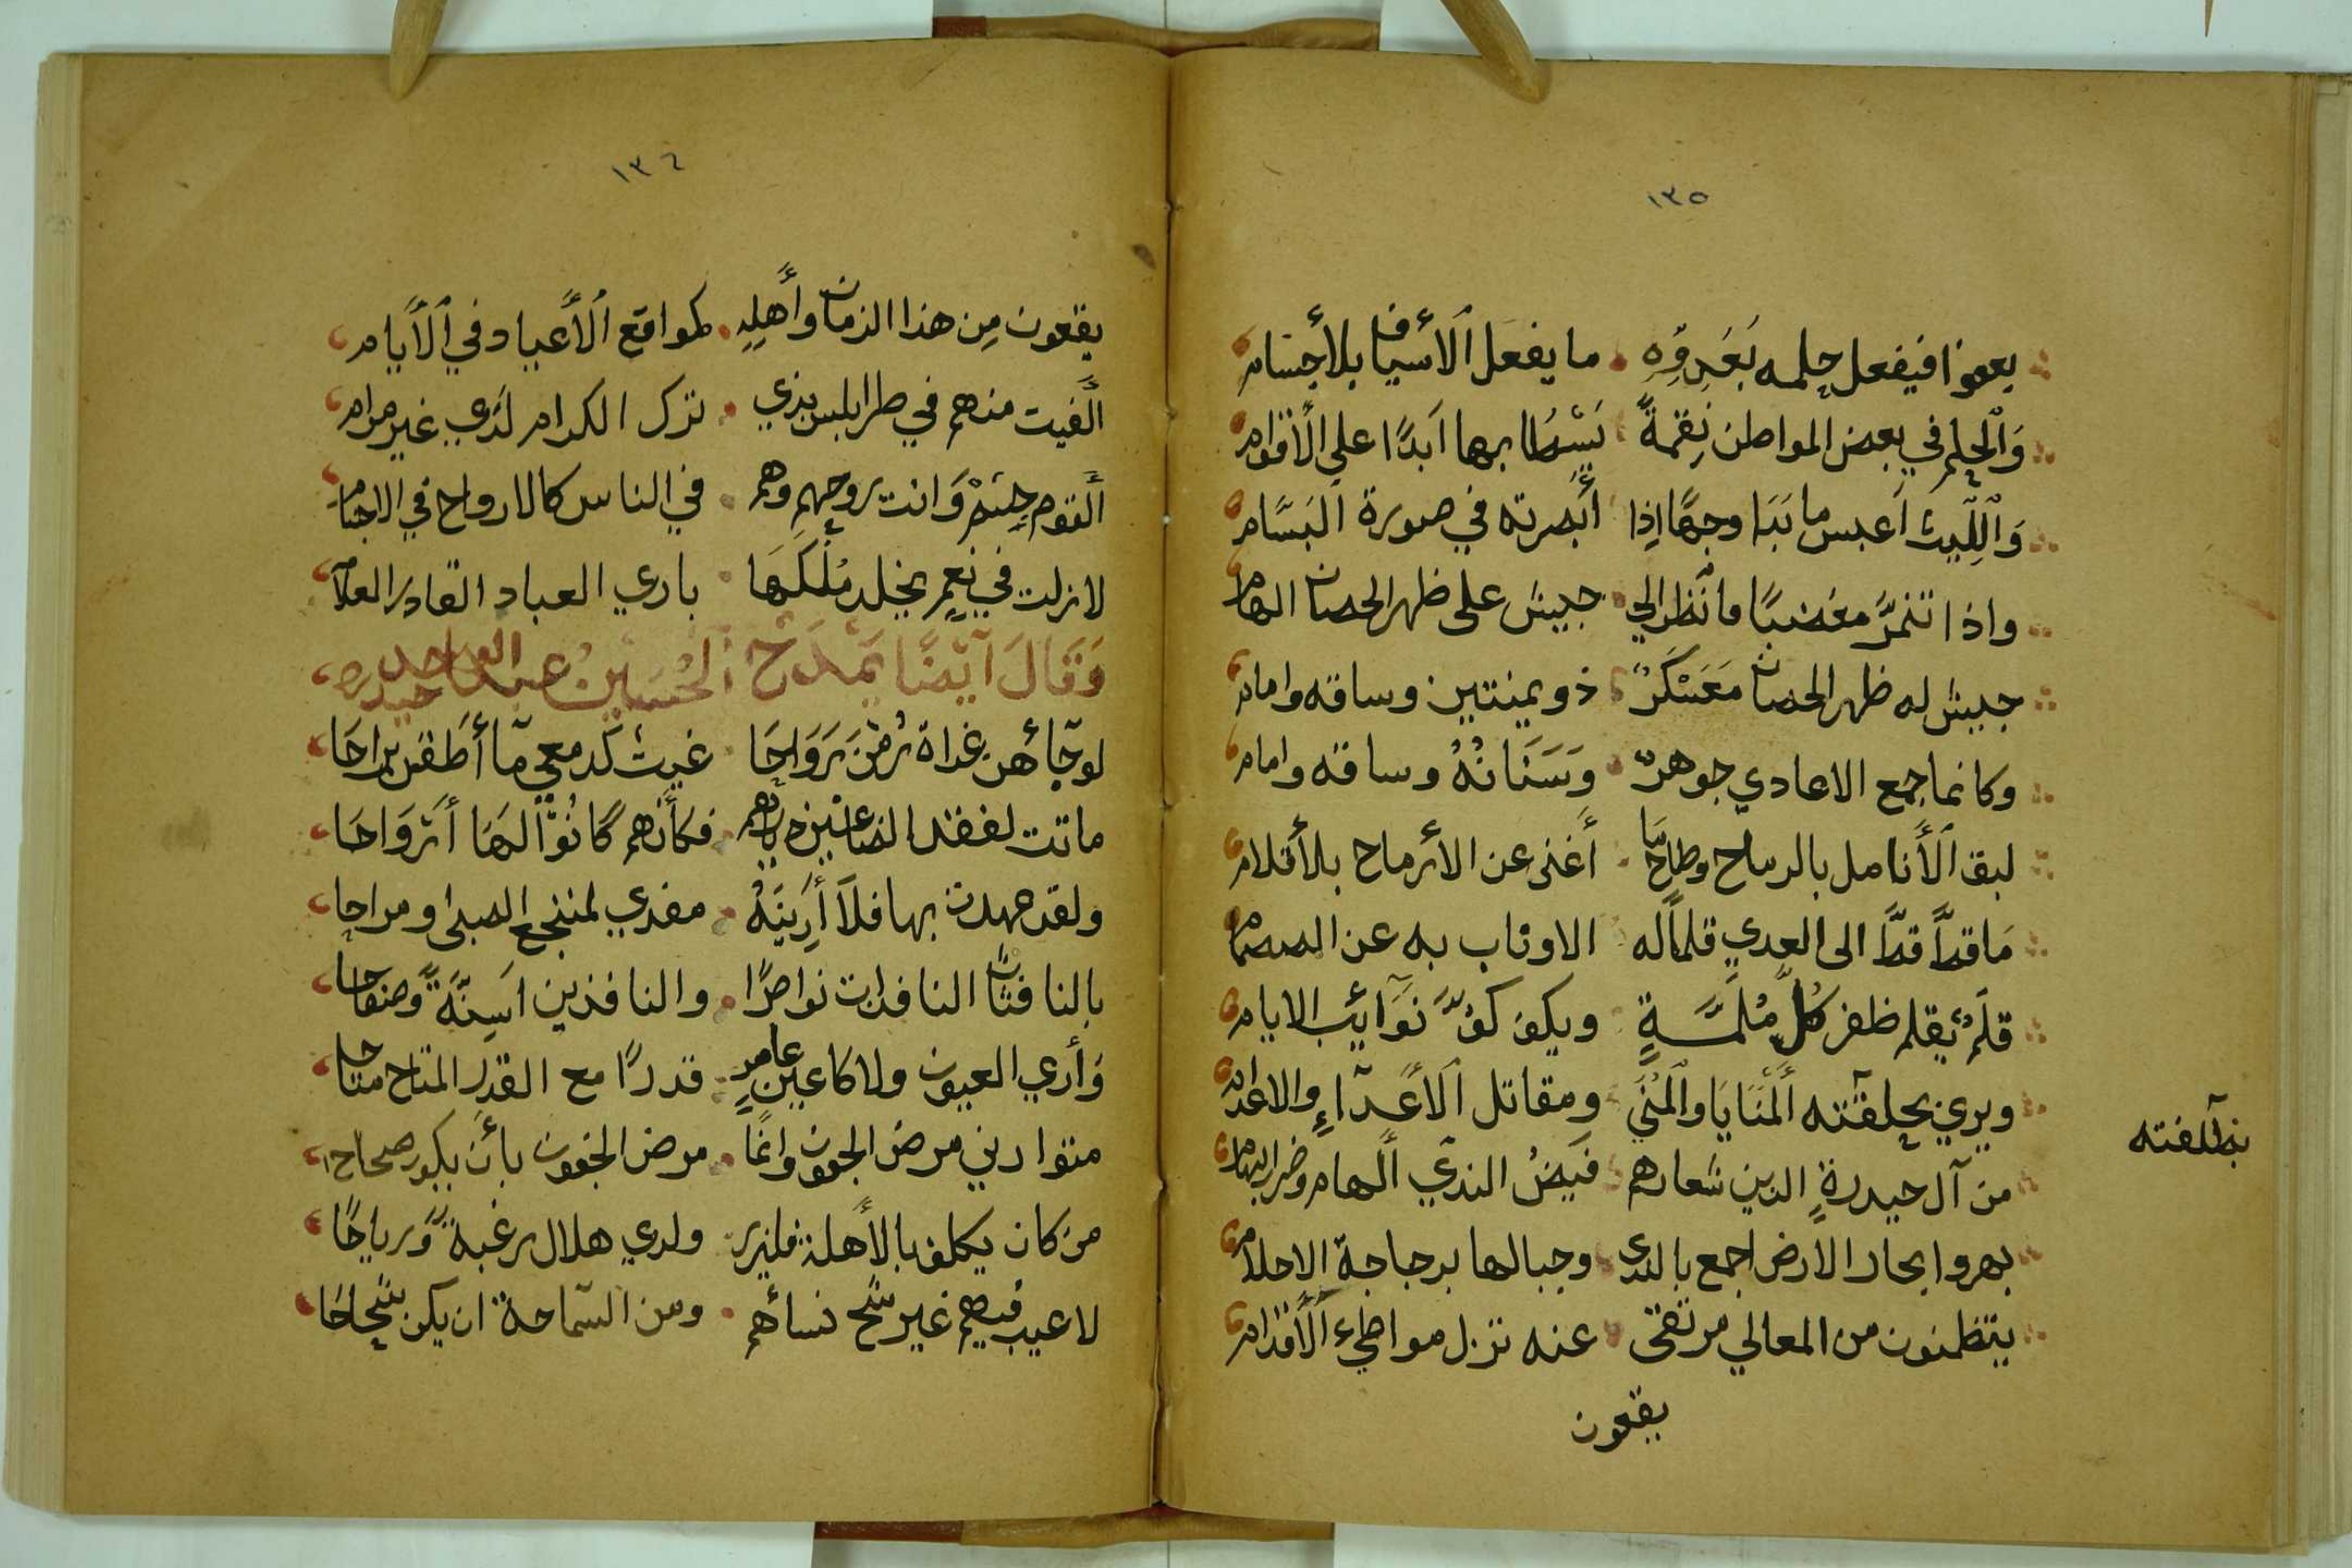 ١٣٥
يعفوا فيفعل حلمه بعدوه ما يفعل الأسياف بلأجسام
والحلم في بعض المواطن نقمةً يسطا بها ابدًا على الأقوام
والليث اعبس ما بدا وجهًا إذا أبصرته في صورة البسّام
واذا تنمّر مغضبًا فانظر الي جيش على ظهر الحصان الهام
جيش له ظهر الحصان معسكرٌ ذو يمنتين وساقه وامام
وكانما جمع الاعادي جوهرٌ وسنانُهُ وساقه وامام
لبق الأنامل بالرماح وطالما أغنى عن الأرماح بلأقلام
ما قطّ قطّ الى العدي قلمًا له الا وناب به عن الصمصام
قلم يقلم ظفر كلّ ملمّةٍ ويكف كفّ نوآئب الايام
ويري بحلقته ألمنايا والمني ومقاتل الأعدآءِ والاعدام
بطلفته
من آل حيدرةٍ الذين شعارهم فيض الندي الهام وضرب الهام
بهروا بحار الارض اجمع بالندى وجبالها برجاجة الاحلام
يتظمنون من المعالي مرتقى عنه تزل مواطيء ألأقدام
يقعون
١٣٦
يقعون مِن هذا الزمان وأهلِهِ كمواقع ألأعياد في ألأيام
ألفيت منهم في طرابلس بذي ترك الكرام لدي غير مرام
ألقوم جسمٌ وانت روحهم وهم في الناس كالارواح في الاجسام
لا زلت في نعم يخلد مُلكَها باري العباد القادر العلام
وَقَالَ آيضًا يَمْدَحُ الحُسَين بن عبد الواحد حيدره
لو جآأهن غداة رُمْنَ رَوَاحَا غيث كدمعي مآ أطقن براحا
ماتت لفقد الضاعنين ديارهم فكأنهم كانُوْا لها أرْوَاحَا
ولقد عهدت بها فلا أرينّهُ مغدي لمنتجع الصبى ومراحا
بالنافثات النافذات نواضرًا والنافذين اسِنّةً وصفاحا
وأري العيون ولا كاعين عامرٍ قدرًا مع القدر المتاح متاحا
متوارثي مرض الجفون وانمّا مرض الجفون بأن يكون صحاحا
من كان يكلف بالأهلة فليزر ولدي هلال رغبةً ورياحًا
لا عيب فيهم غير شح نسائهم ومن السّماحة ان يكن شحاحا